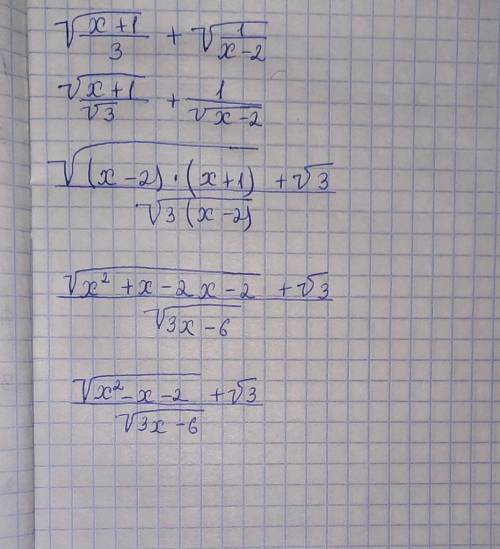 √((x+1)/3) + √(1/(x-2))
√(x+1)/√3 + 1/√(x-2)
(√((x-2)·(x+1)) + √3)/√(3(x-2))
(√(x²+x-2x-2) + √3)/√(3x-6)
(√(x²-x-2) + √3)/√(3x-6)